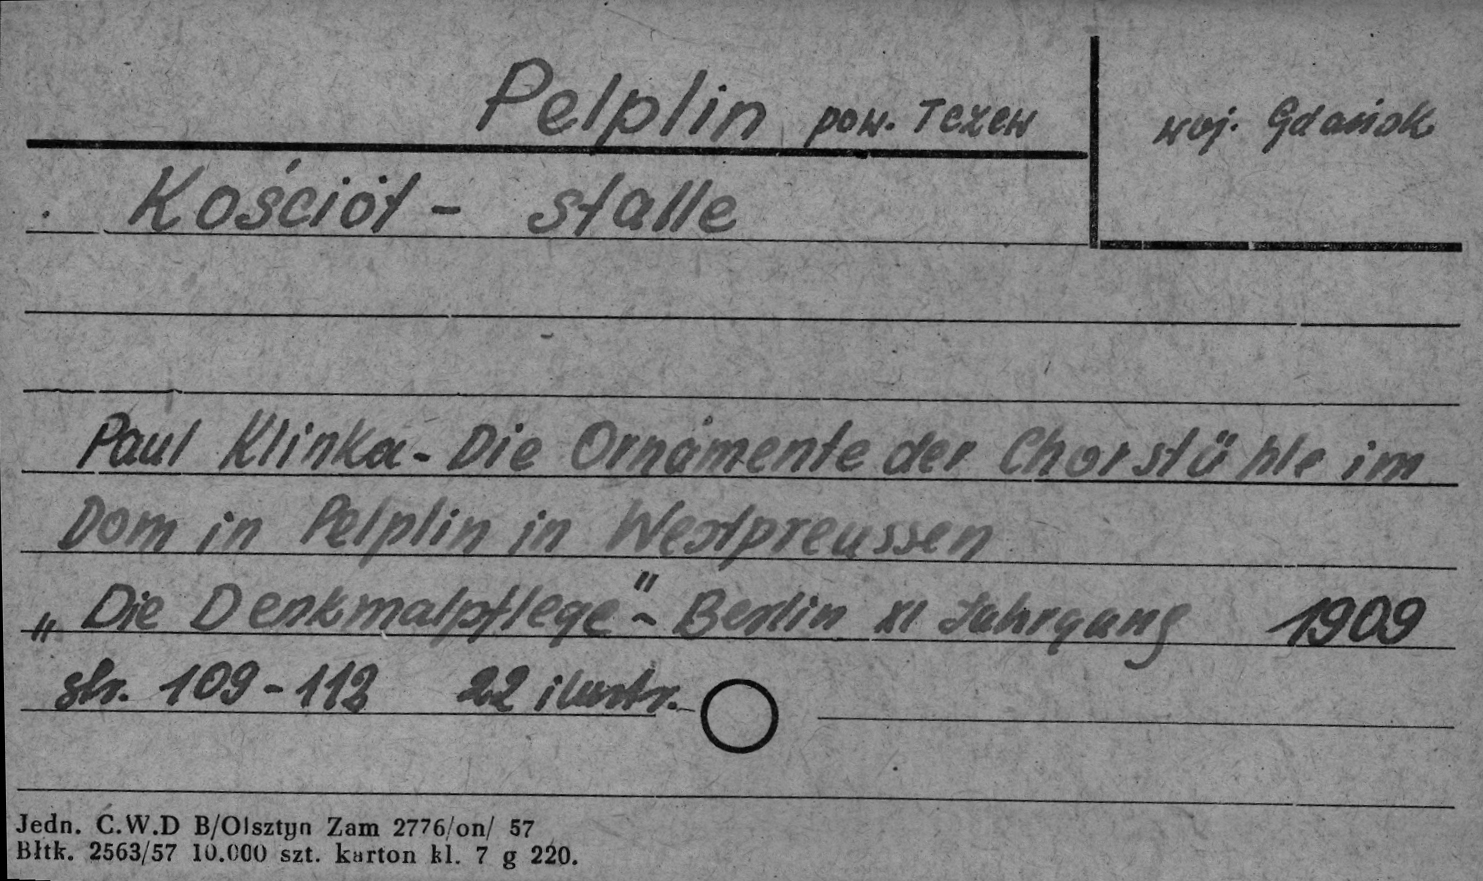 Pelplin pow. Tczew
woj. Gdańsk
Kościół - stalle
Paul Klinka - Die Ornamente der Chorstühle im
Dom in Pelplin in Westpreussen
„Die Denkmalpflege" - Berlin XI Jahrgang 1909
str. 109-113 22 ilustr.
Jedn. C.W.D B/Olsztyn Zam 2776/on/ 57
Błtk. 2563/57 10.000 szt. karton kl. 7 g 220.